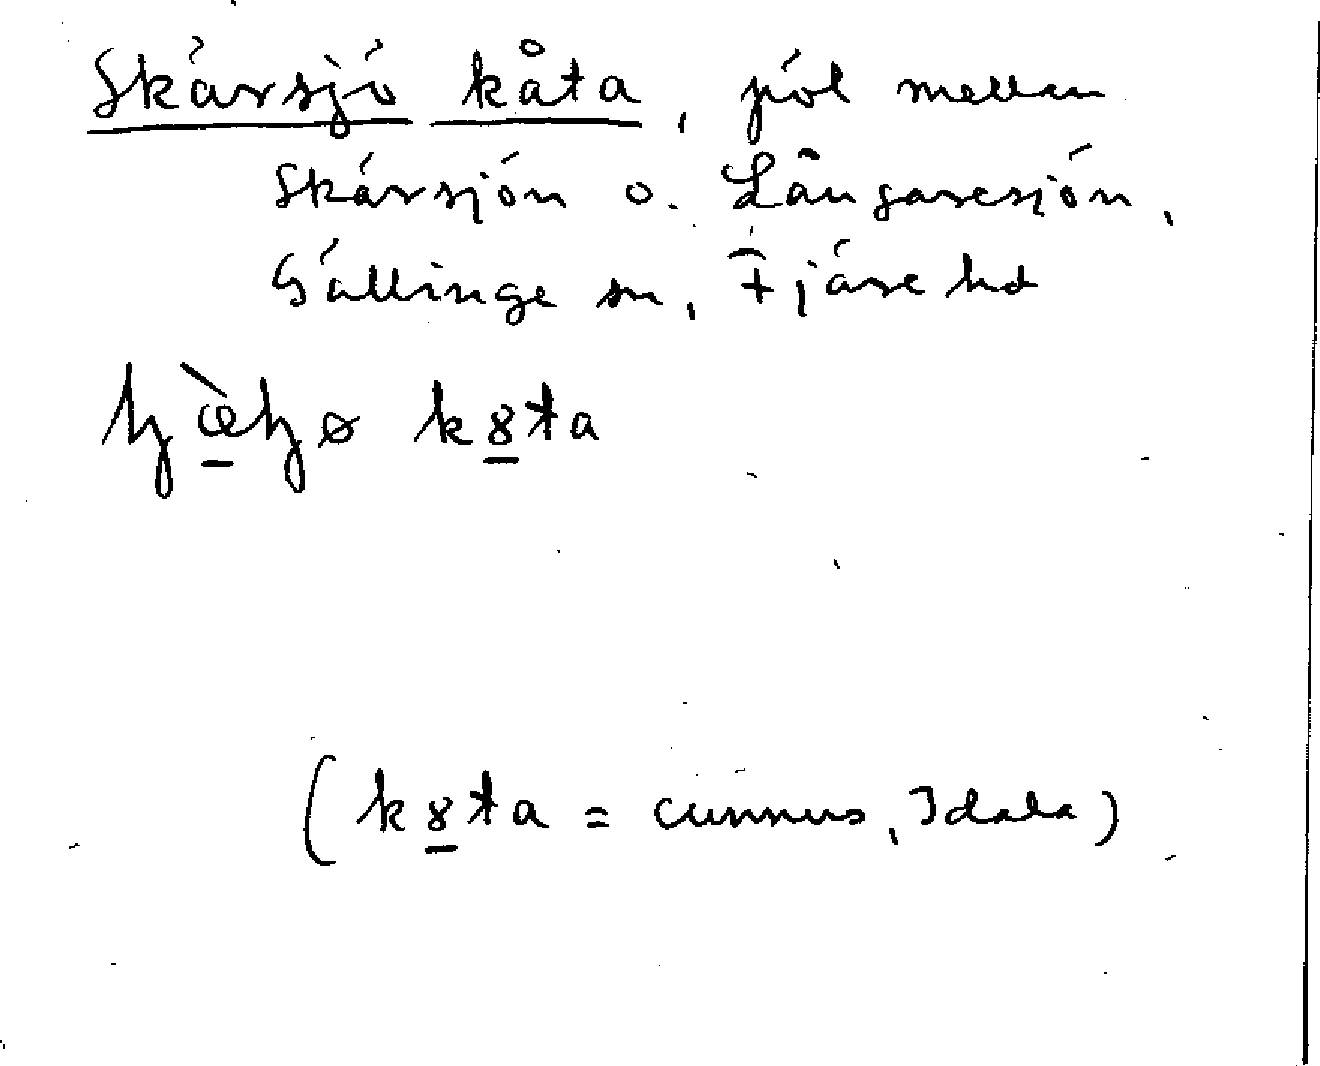 Skärsjö kåta, pöl mellan
Skärsjön o. Långaresjön,
Gällinge sn, Fjäre hd
kata
(kata = cunnus, Idala)